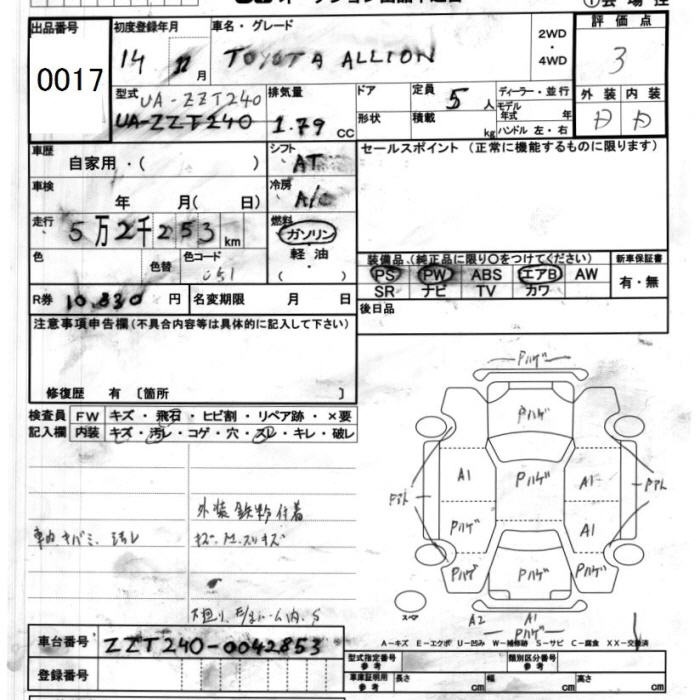 出品番号 初度登録年月 車名・グレード 2WD・4WD 評価点
0017 14 12 月 TOYOTA ALLION 3
型式 UA-ZZT240 排気量 ドア 定員 5 人 ディーラー・並行 外装 内装
UA-ZZT240 1.79 CC 形状 積載 kg モデル年式 年 ハンドル 左・右 D D
車歴 シフト セールスポイント (正常に機能するものに限ります)
自家用・( ) AT
車検 冷房
年 月( 日) A/C
走行 5万2千253 km 燃料 ガソリン
色 色替 色コード 051 軽油・( )
装備品 (純正品に限り〇をつけてください) 新車保証書
PS PW ABS エアB AW 有・無
SR ナビ TV カワ
R券 10,830 円 名変期限 月 日 後日品
注意事項申告欄(不具合内容等は具体的に記入して下さい)
修復歴 有 〔箇所 〕
検査員 FW キズ・飛石・ヒビ割・リペア跡・×要
記入欄 内装 キズ・汚レ・コゲ・穴・スレ・キレ・破レ
Pハゲ
Pハゲ
A1 Pハゲ A1
Pハゲ A1
Pハゲ Pハゲ Pハゲ
外装 鉄粉付着
車内 キバミ、汚レ
スペア A2 A1
Pハゲ
A-キズ E-エクボ U-凹み W-補修跡 S-サビ C-腐食 XX-交換済
車台番号 ZZT240-0042853
登録番号
型式指定番号 参考 類別区分番号 参考
車庫証明用 参考 長さ cm 幅 cm 高さ cm